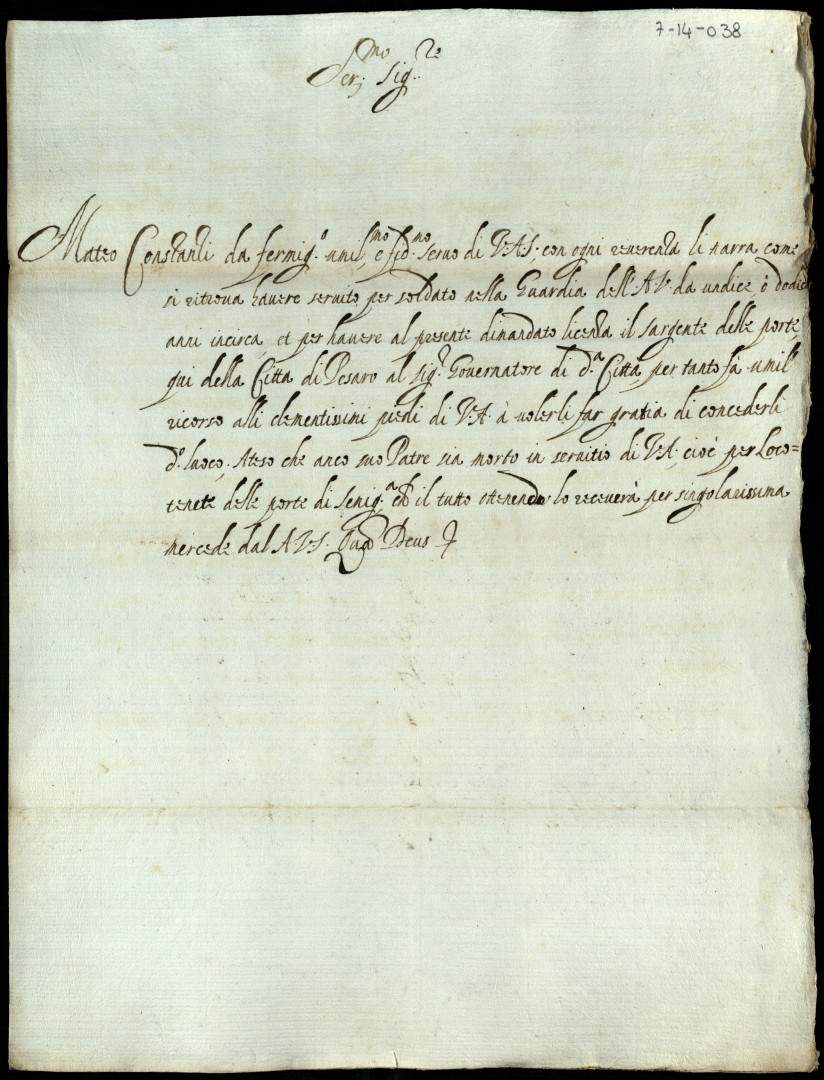 7-14-038
Ser.mo Sig.re
Mateo Constanti da fermig.o umil.mo e fid.mo servo di V.A.S. con ogni reverenza li narra come
si ritrova havere servito per soldato nella Guardia dell'A.V. da undice ò dodici
anni incirca, et per havere al presente dimandato licenza il sargente delle porte,
qui della Città di Pesaro al sig.r Governatore di d.a Città, per tanto fà umil
ricorso alli clementissimi piedi di V.A. à volerli far gratia di concederli
d.o luoco, Ateso che anco suo Patre sia morto in servitio di V.A. cioè per Loco=
tenete delle porte di Senig.a ch il tutto otenendo lo receverà per singolarissima
mercede dal A.V.S. Quā Deus